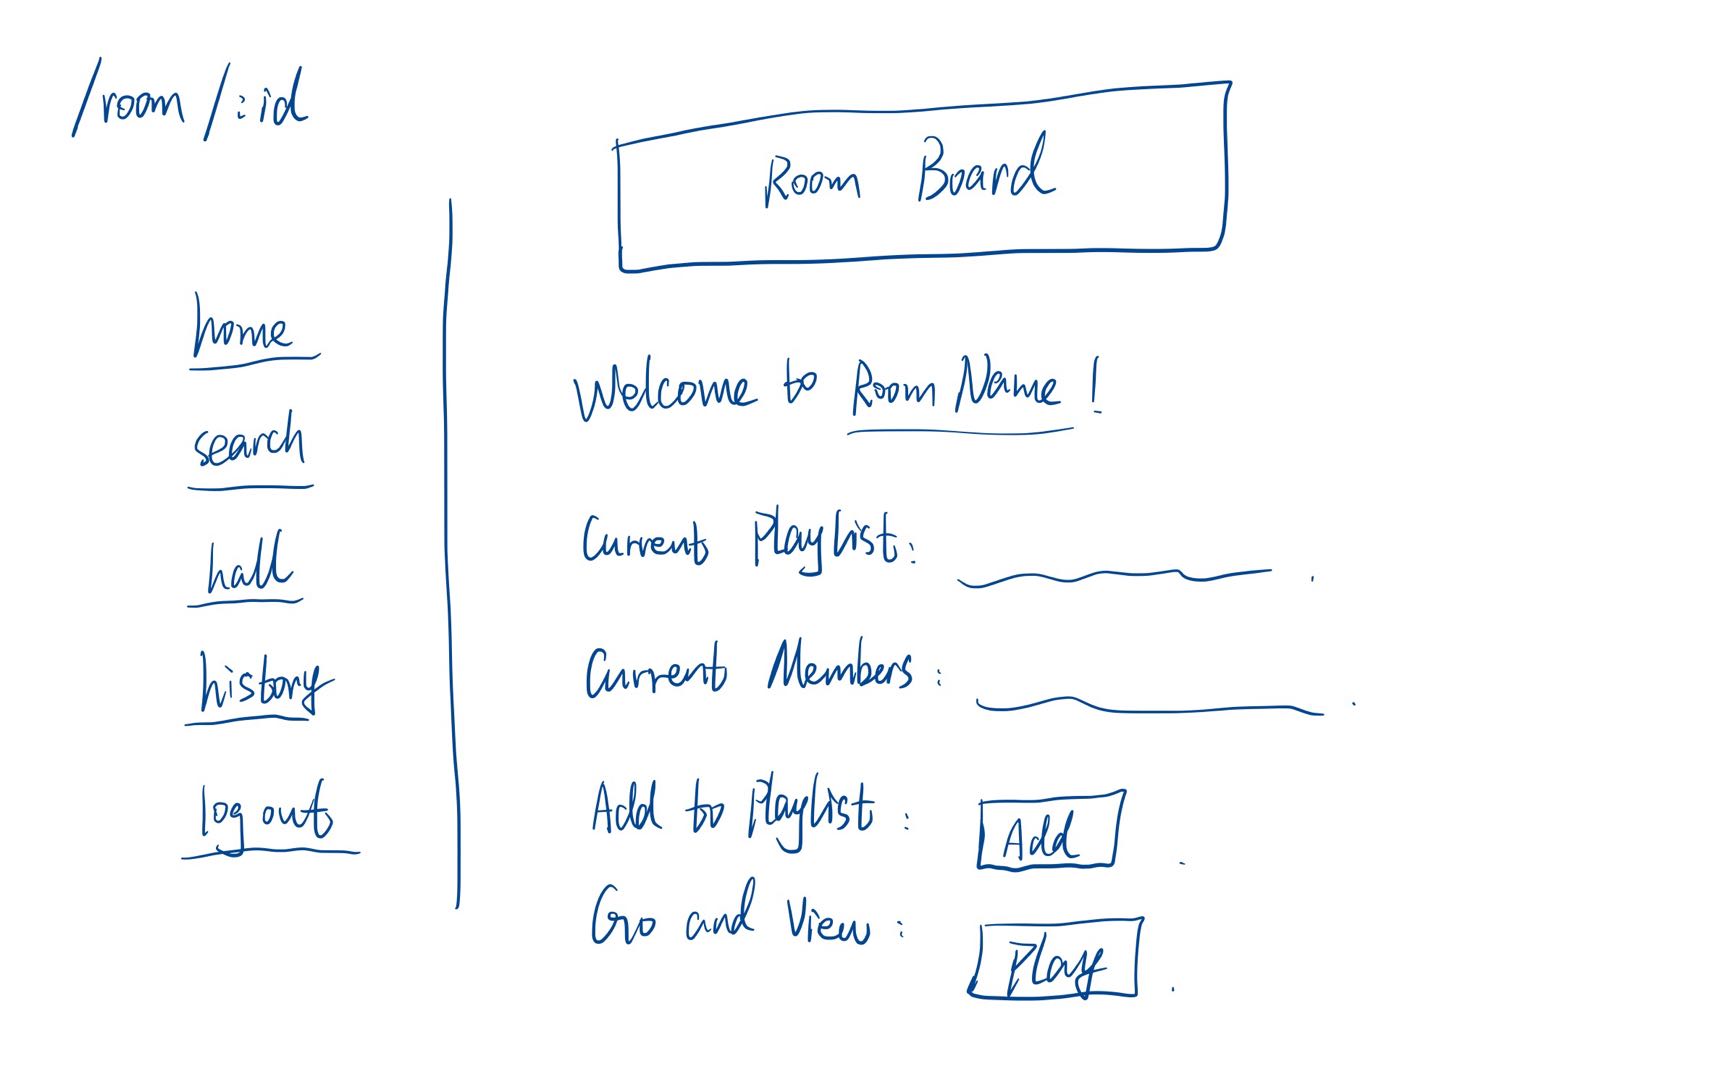 /room/:id
Room Board
home
search
hall
history
log out
Welcome to Room Name!
Current Playlist: .
Current Members: .
Add to Playlist: Add .
Go and View: Play .